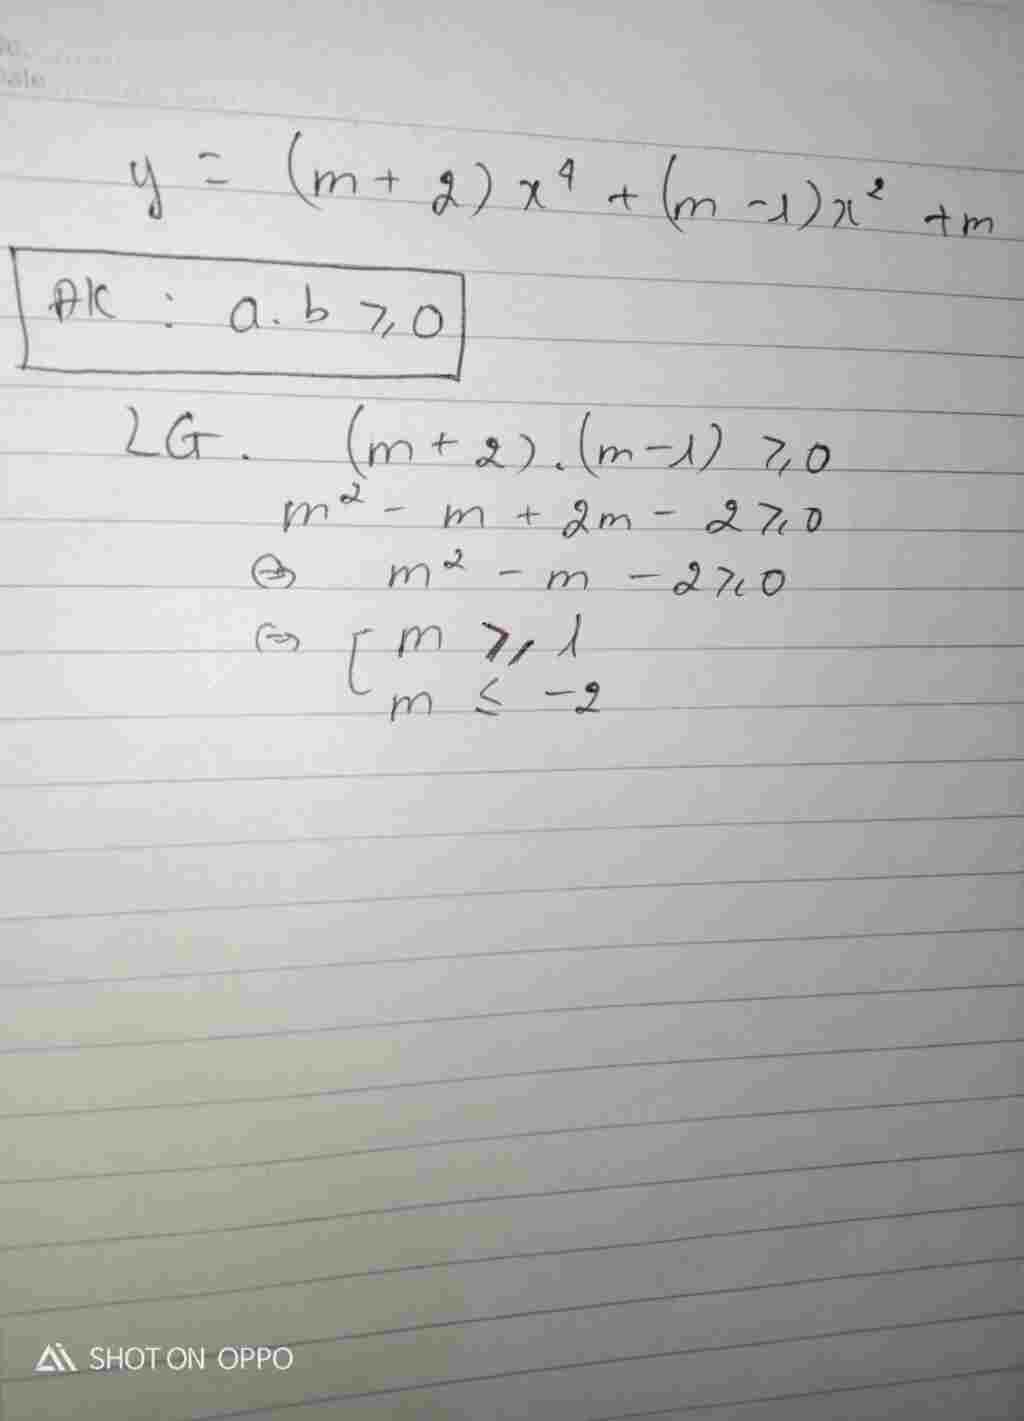 No.
Date
y = (m + 2) x⁴ + (m - 1)x² + m
ĐK : a.b ≥ 0
LG. (m + 2).(m - 1) ≥ 0
m² - m + 2m - 2 ≥ 0
⇔ m² - m - 2 ≥ 0
⇔ [ m ≥ 1
m ≤ -2
SHOT ON OPPO